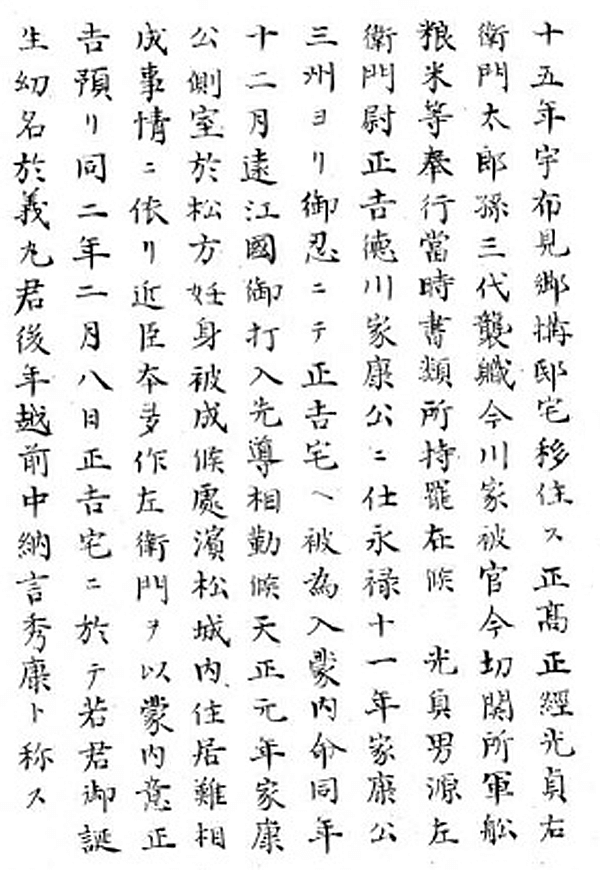 十五年宇布見郷構邸宅移住ス正髙正經光貞右
衛門太郎孫三代襲職今川家被官今切関所軍舩
粮米等奉行當時書類所持罷在候　光貞男源左
衛門尉正吉德川家康公ニ仕永禄十一年家康公
三州ヨリ御忍ニテ正吉宅ヘ被為入蒙内命同年
十二月遠江國御打入先導相勤候天正元年家康
公側室於松方妊身被成候處濱松城内住居難相
成事情ニ依リ近臣本多作左衛門ヲ以蒙内意正
吉預リ同二年二月八日正吉宅ニ於テ若君御誕
生幼名於義丸君後年越前中納言秀康ト称ス